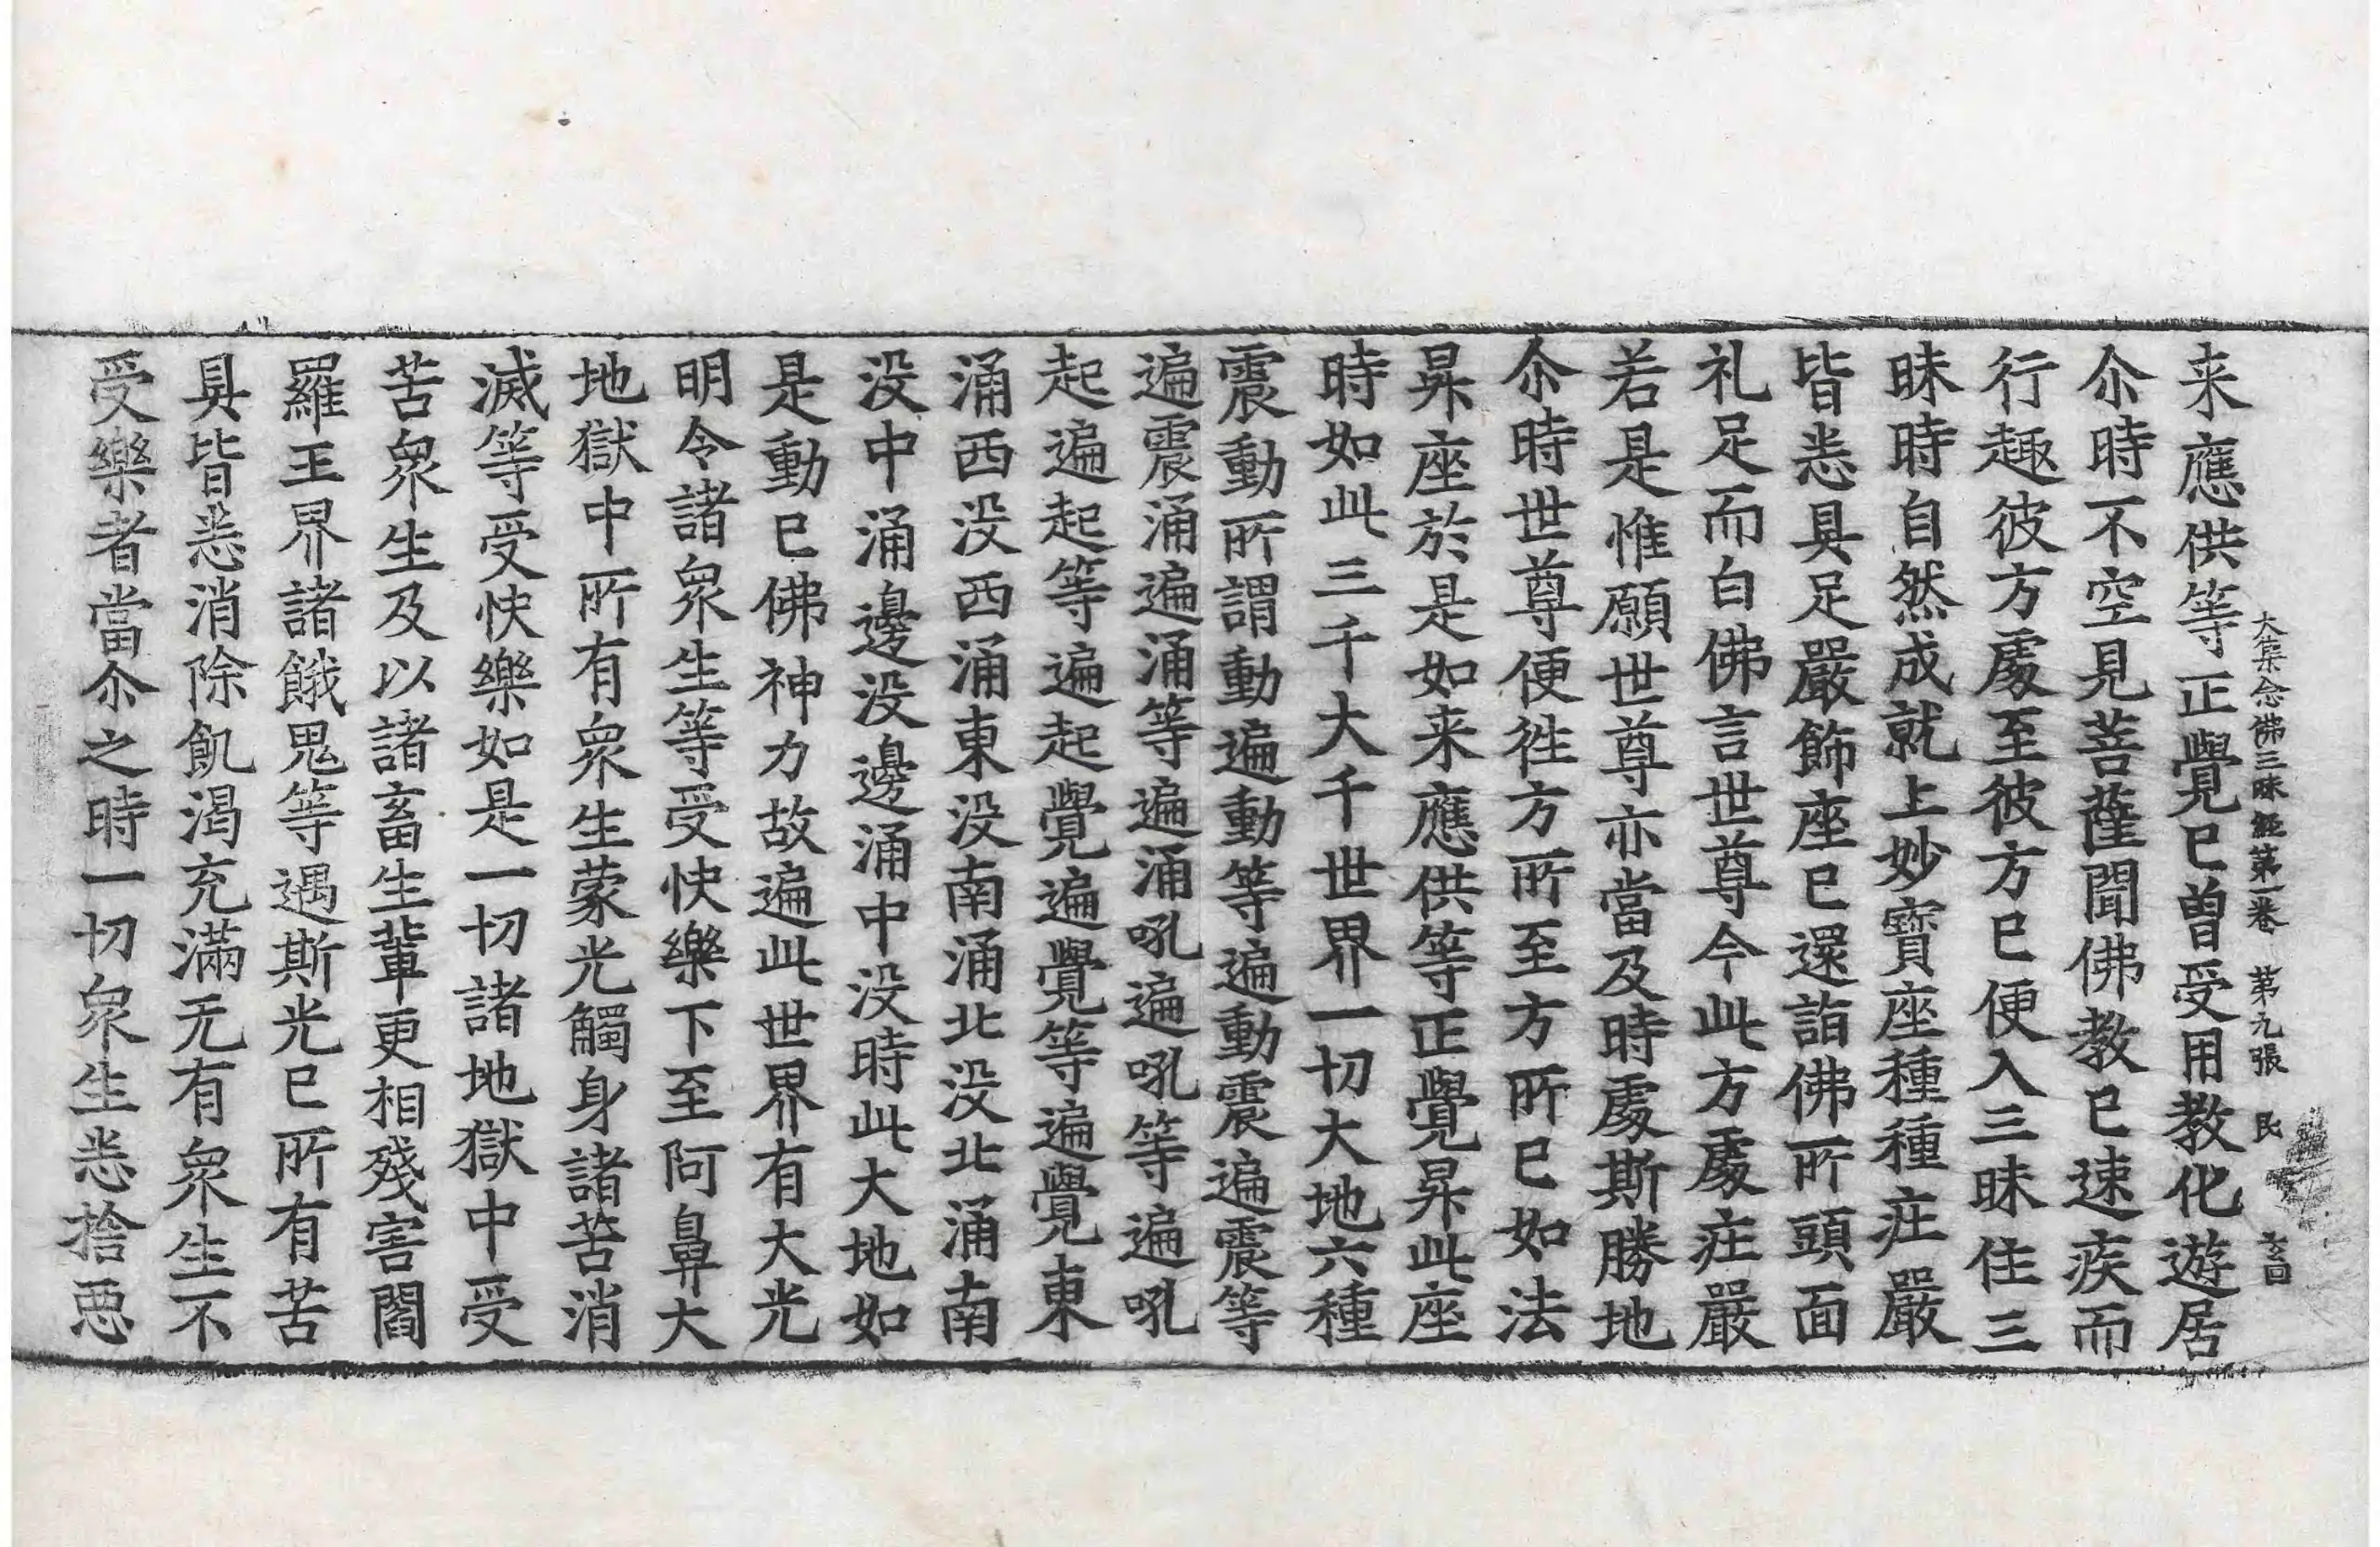 大集念佛三昧經第一卷　第九張　民
来應供等正覺已曽受用教化遊居
尒時不空見菩薩聞佛教已速疾而
行趣彼方處至彼方已便入三昧住三
昧時自然成就上妙寶座種種庄嚴
皆悉具足嚴飾座已還詣佛所頭面
礼足而白佛言世尊今此方處庄嚴
若是惟願世尊亦當及時處斯勝地
尒時世尊便徃方所至方所已如法
昇座於是如来應供等正覺昇此座
時如此三千大千世界一切大地六種
震動所謂動遍動等遍動震遍震等
遍震涌遍涌等遍涌吼遍吼等遍吼
起遍起等遍起覺遍覺等遍覺東
涌西没西涌東没南涌北没北涌南
没中涌邊没邊涌中没時此大地如
是動已佛神力故遍此世界有大光
明令諸衆生等受快樂下至阿鼻大
地獄中所有衆生蒙光觸身諸苦消
滅等受快樂如是一切諸地獄中受
苦衆生及以諸畜生輩更相殘害閻
羅王界諸餓鬼等遇斯光已所有苦
具皆悉消除飢渴充滿无有衆生不
受樂者當尒之時一切衆生悉捨惡